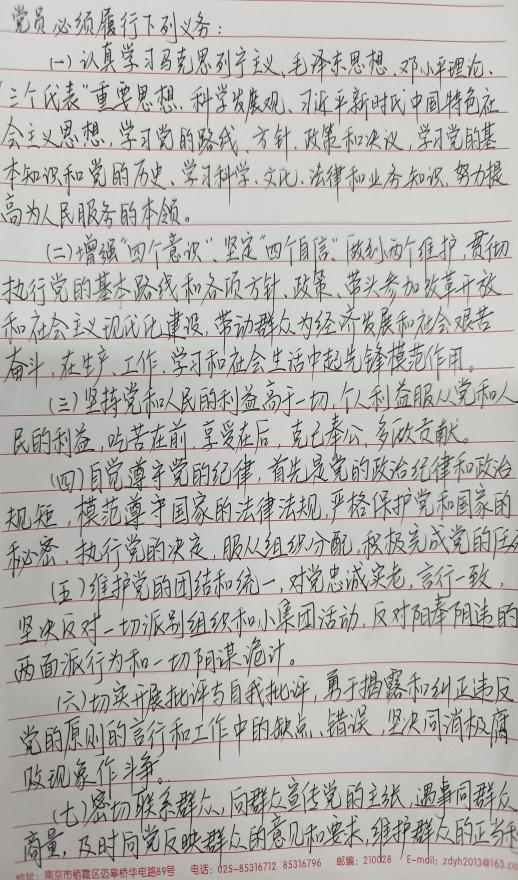 党员必须履行下列义务：
(一)认真学习马克思列宁主义、毛泽东思想、邓小平理论、
“三个代表”重要思想、科学发展观、习近平新时代中国特色社
会主义思想，学习党的路线、方针、政策和决议，学习党的基
本知识和党的历史，学习科学、文化、法律和业务知识，努力提
高为人民服务的本领。
(二)增强“四个意识”、坚定“四个自信”、做到两个维护，贯彻
执行党的基本路线和各项方针、政策，带头参加改革开放
和社会主义现代化建设，带动群众为经济发展和社会艰苦
奋斗，在生产、工作、学习和社会生活中起先锋模范作用。
(三)坚持党和人民的利益高于一切，个人利益服从党和人
民的利益，吃苦在前，享受在后，克己奉公，多做贡献。
(四)自觉遵守党的纪律，首先是党的政治纪律和政治
规矩，模范遵守国家的法律法规，严格保护党和国家的
秘密，执行党的决定，服从组织分配，积极完成党的任务
(五)维护党的团结和统一，对党忠诚实老，言行一致，
坚决反对一切派别组织和小集团活动，反对阳奉阴违的
两面派行为和一切阴谋诡计。
(六)切实开展批评与自我批评，勇于揭露和纠正违反
党的原则的言行和工作中的缺点、错误，坚决同消极腐
败现象作斗争。
(七)密切联系群众，向群众宣传党的主张，遇事同群众
商量，及时向党反映群众的意见和要求，维护群众的正当利
南京市栖霞区迈皋桥华电路89号 电话：025-85316712 85316796 邮编：210028 E-mail: zdyh2013@163.co